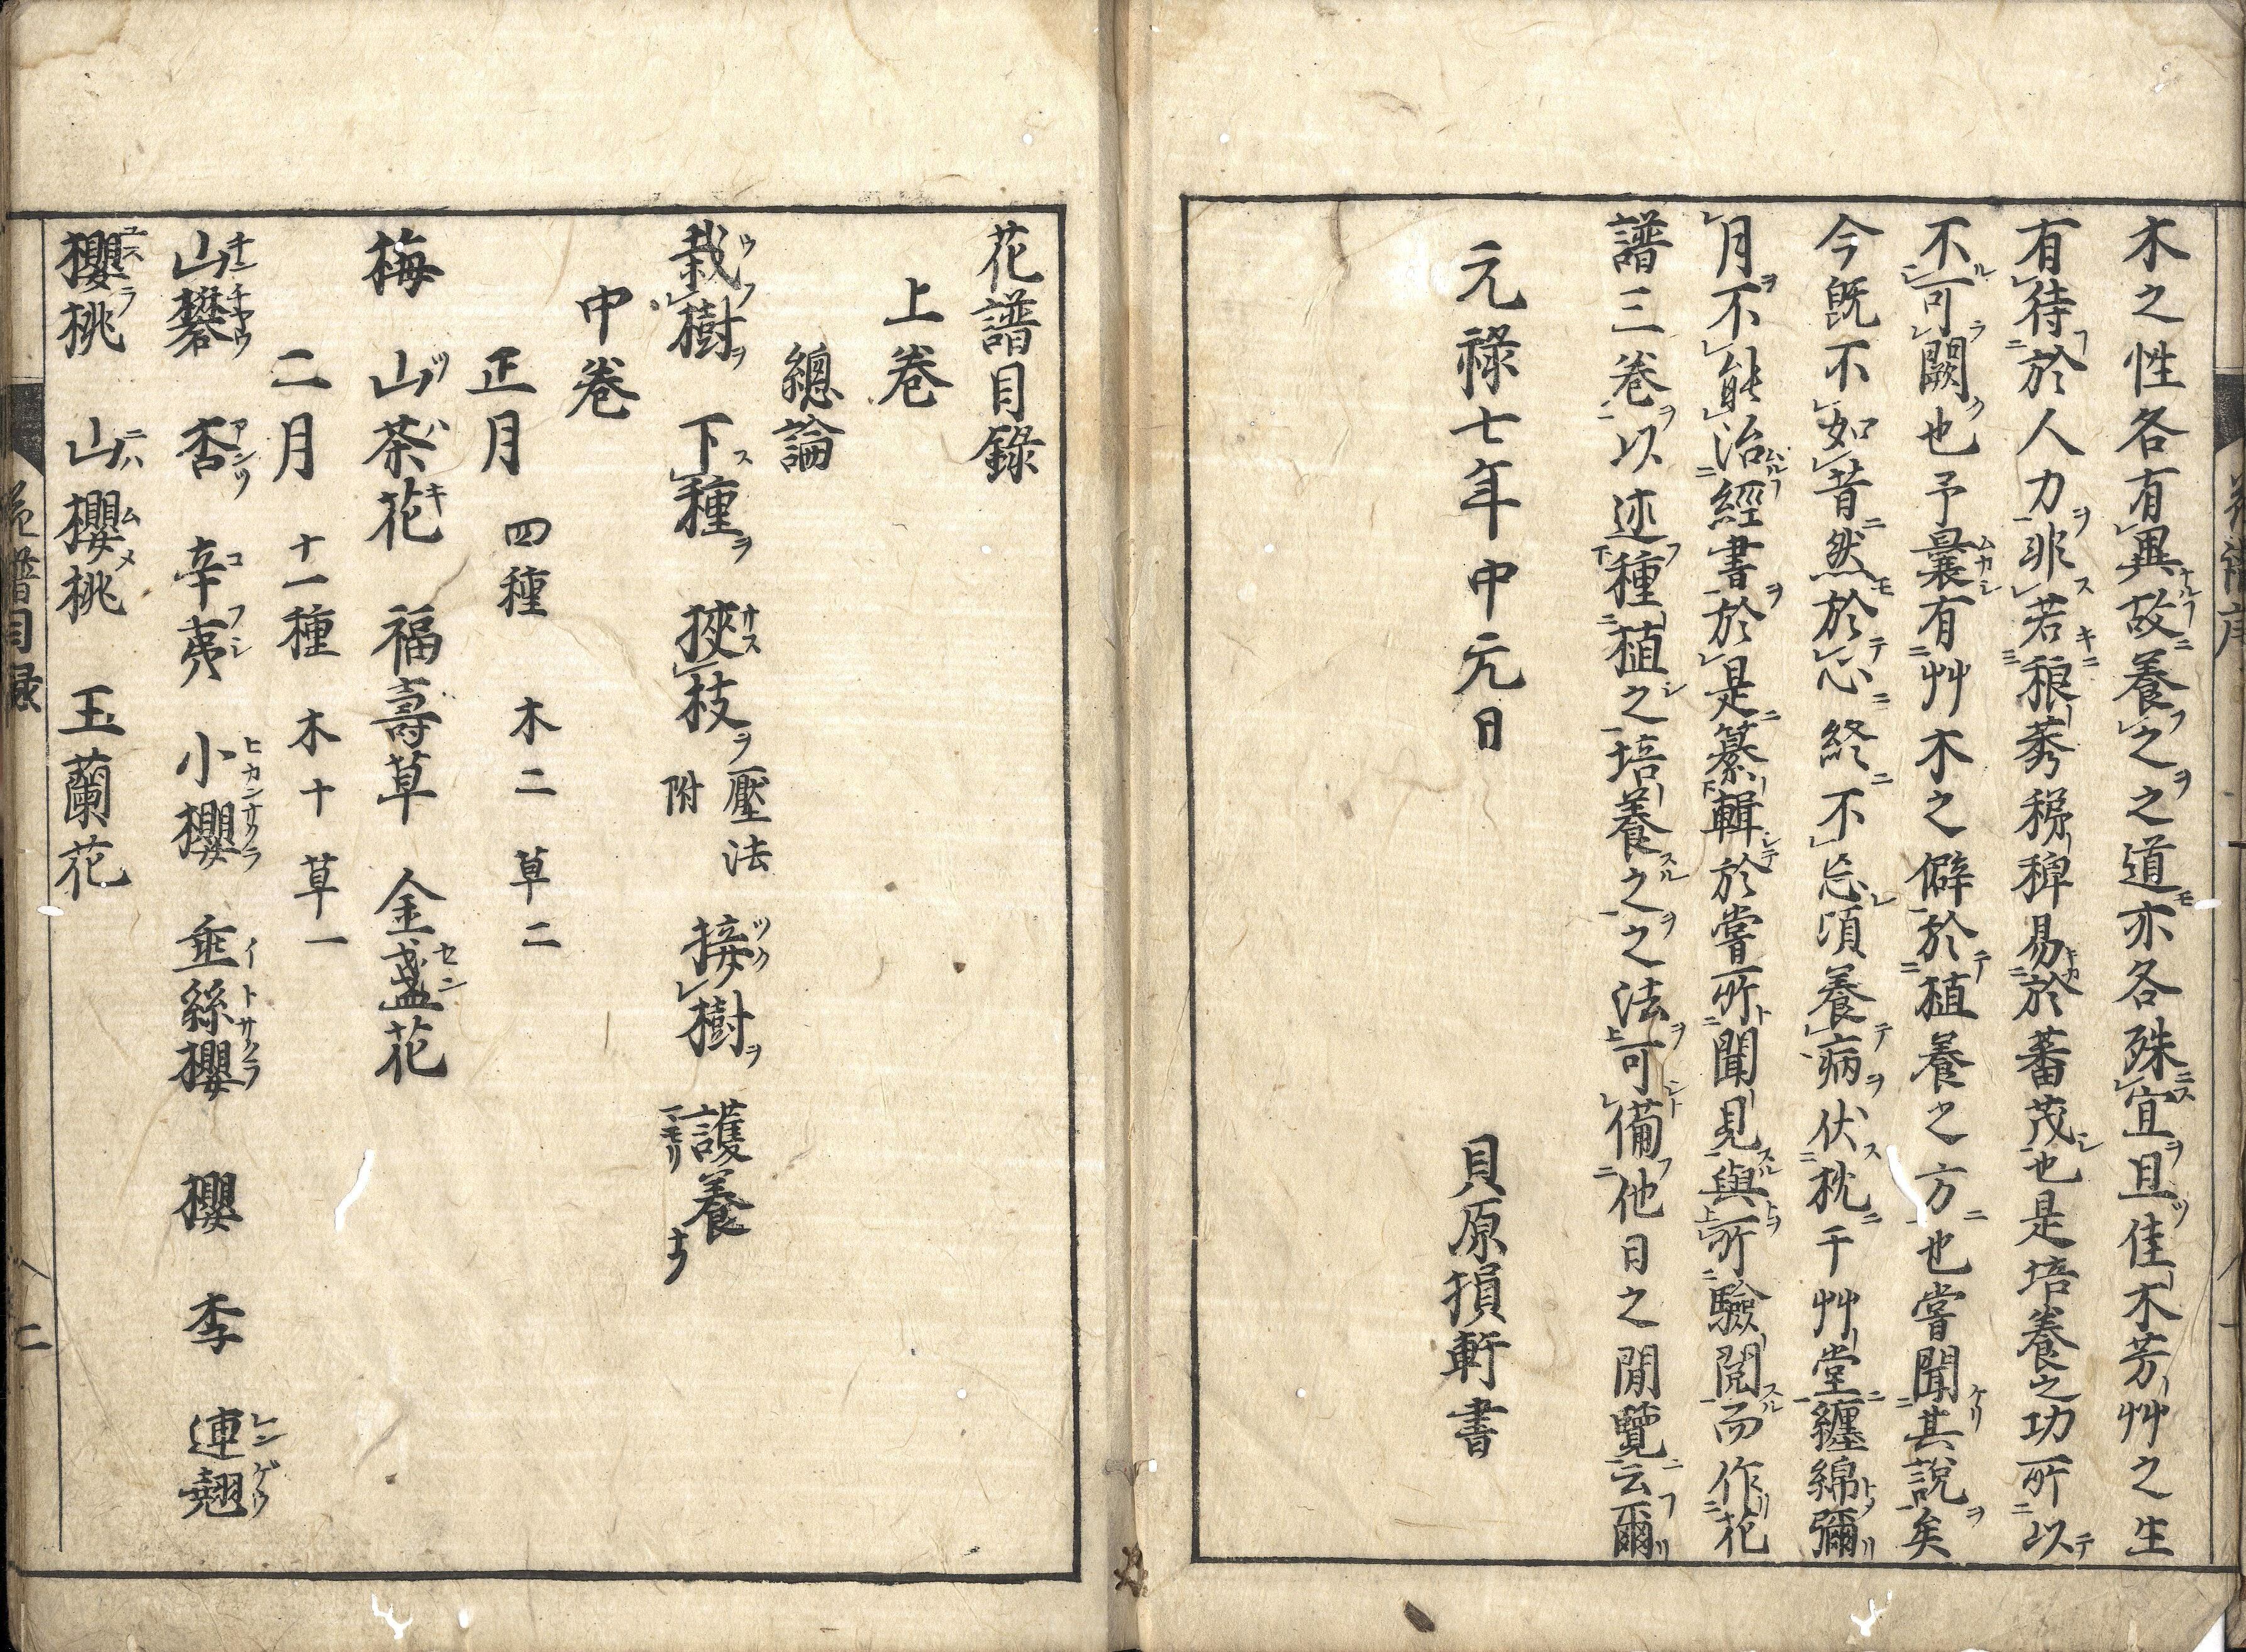 木之性各有異故養之之道亦各殊宜且佳木芳艸之生
有待於人力非若稂莠稊稗易於蕃茂也是培養之功所以
不可闕也予曩有艸木之僻於植養之方也嘗聞其說矣
今既不如昔然於心終不忘頃養病伏枕于艸堂纏綿彌
月不能治經書於是纂輯於嘗所聞見與所驗閲而作花
譜三卷以述種植之培養之之法可備他日之閒覽云爾
元祿七年中元日
貝原損軒書
花譜目錄
上卷
總論
栽樹 下種 挾枝 壓法附 接樹 護養
中卷
正月 四種 木二 草二
梅 山茶花 福壽草 金盞花
二月 十一種 木十 草一
山礬 杏 辛夷 小櫻 垂絲櫻 櫻 李 連翹
櫻桃 山櫻桃 玉蘭花
花譜目録 二